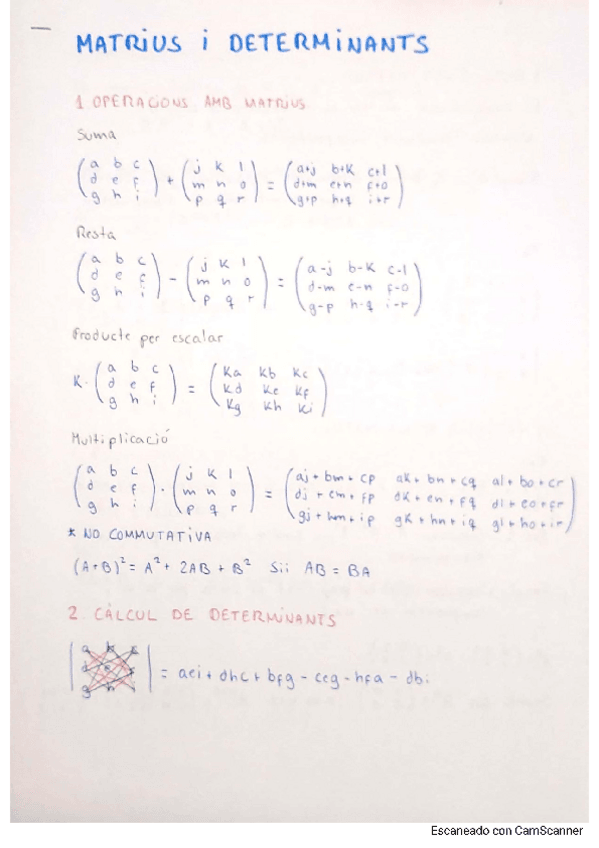 MATRIUS i DETERMINANTS
1 OPERACIONS AMB MATRIUS
Suma
(a b c / d e f / g h i) + (j k l / m n o / p q r) = (a+j b+k c+l / d+m e+n f+o / g+p h+q i+r)
Resta
(a b c / d e f / g h i) - (j k l / m n o / p q r) = (a-j b-k c-l / d-m e-n f-o / g-p h-q i-r)
Producte per escalar
K · (a b c / d e f / g h i) = (Ka Kb Kc / Kd Ke Kf / Kg Kh Ki)
Multiplicació
(a b c / d e f / g h i) · (j k l / m n o / p q r) = (aj+bm+cp ak+bn+cq al+bo+cr / dj+em+fp dk+en+fq dl+eo+fr / gj+hm+ip gk+hn+iq gl+ho+ir)
* NO COMMUTATIVA
(A+B)² = A² + 2AB + B² Sii AB = BA
2. CÀLCUL DE DETERMINANTS
|a b c / d e f / g h i| = aei + dhc + bfg - ceg - hfa - dbi
Escaneado con CamScanner